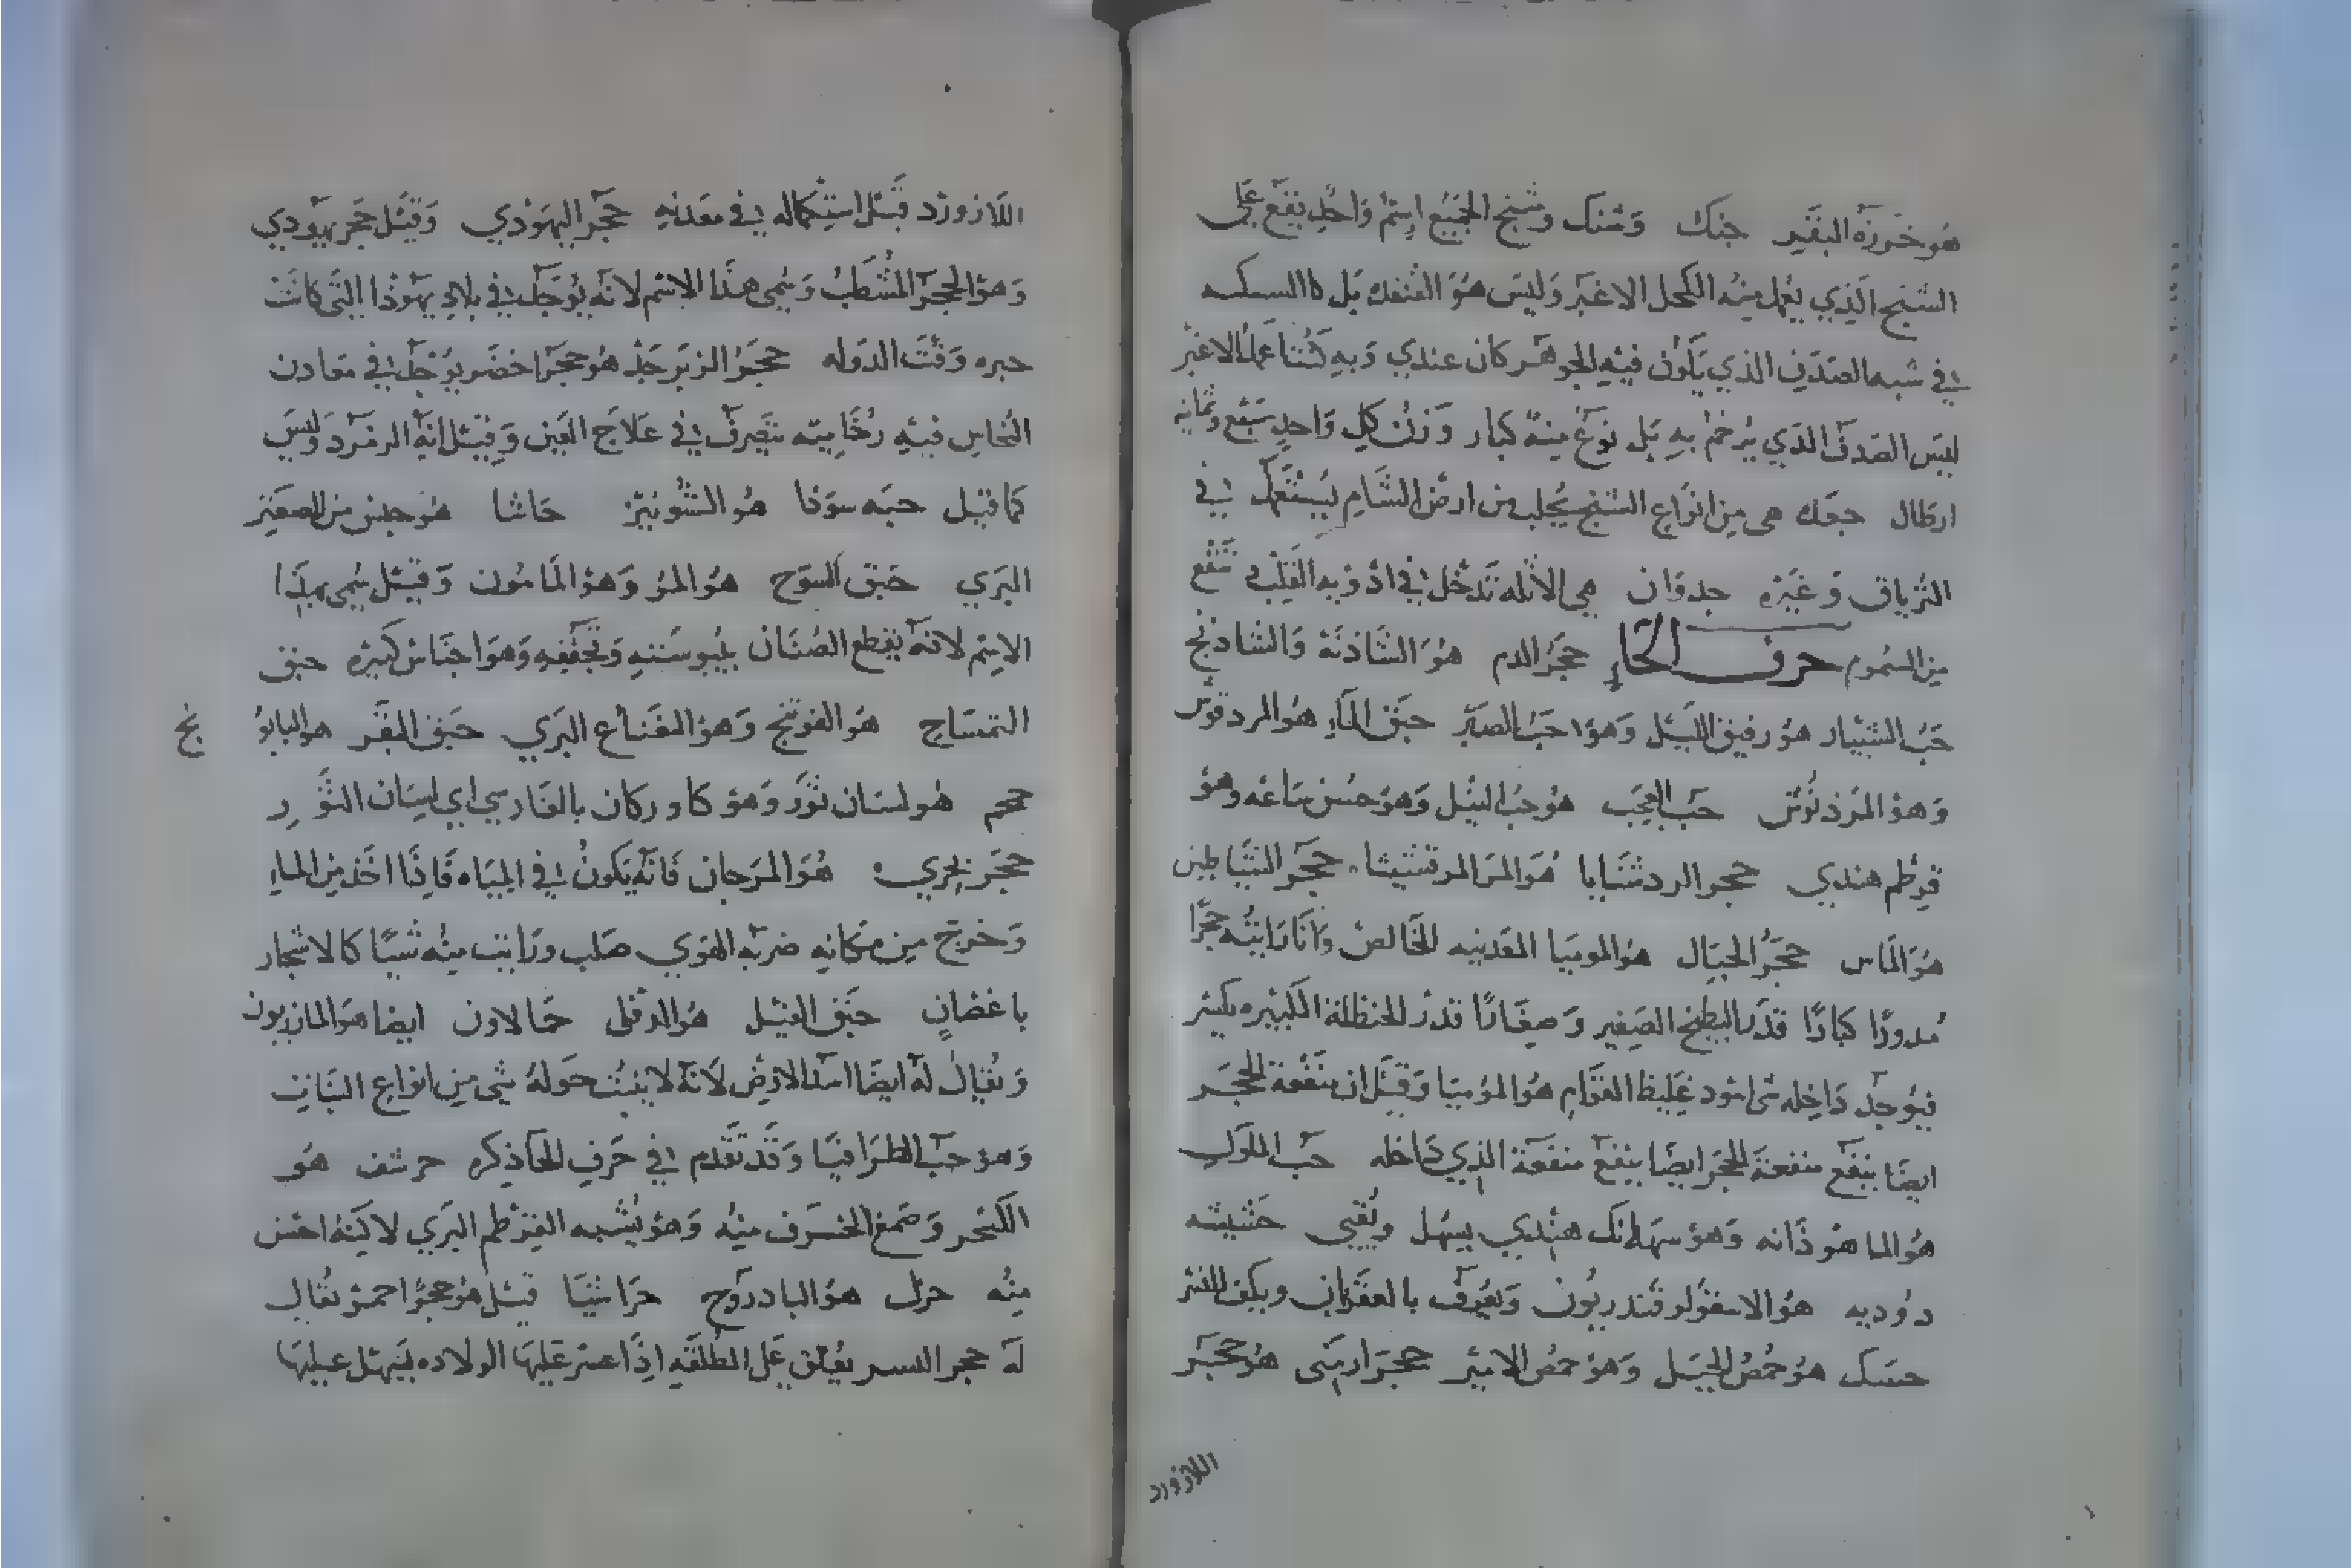 هو خرزة البقر جنك وشنك وشنج الجميع اسم واحد يقع على
الشنج الذي يعمل منه الكحل الاغبر وليس هو القنفد بل
في شبه الصدف الذي يكون فيه الجوهر كان عندي وبه كنا عملنا الاغبر
ليس الصدف الذي يرخم به بل نوع منه كبار وزن كل واحد سبع وثمانيه
ارطال جعده هي من انواع الشنج يجلب من ارض الشام ليستعمل في
الترياق وغيره جدوان هي الاثله تدخل في ادويه القلب تنفع
من السموم حرف الحاء حجر الدم هو الشاذنة والشاذنج
حب الشيار هو رفيق الليل وهو حب الصبر حبق الماء هو المردقوش
وهو المرذنوش حب العجب هو حب النيل وهو حسن ساعه وهو
قرطم هندي حجر الردشنايا هو المرقشيشا حجر الشياطين
هو الماس حجر الجبال هو الموميا المعدنيه الخالص وانا رايته حجرا
مدورا كبارا قدر البطيخ الصغير وصغارا قدر الحنظلة الكبيره يكسر
فيوجد داخله شي اسود غليظ القوام هو الموميا وقيل ان منفعة الحجر
ايضا ينفع منفعة الحجر ايضا ينفع منفعة الذي داخله حب الملوك
هو الماهوذانه وهو سهلانك هندي يسهل ويقيي حشيشه
دوديه هو الاسقولوقندريون ويعرف بالعقربان وبكف النسر
حسك هو حمص الجبل وهو حمص الامير حجر ارمني هو حجر
اللازورد
اللازورد قبل استكماله في معدنه حجر اليهودي وقيل حجر يهودي
وهو الحجر المشطب وسمي هذا الاسم لانه يوجد في بلاد يهوذا التي كانت
حبره وقت الدوله حجر الزبرجد هو حجر اخضر يوجد في معادن
النحاس فيه رخابيته يتصرف في علاج العين وقيل انه الزمرد وليس
كما قيل حبه سودا هو الشونيز حاشا هو جنس من الصعتر
البري حبق السوح هو المرو وهو المامون وقيل سمي بهذا
الاسم لانه يقطع الصنان بيبوسته وتجففه وهو اجناس كثيره حبق
التمساح هو الفوتنج وهو النعناع البري حبق البقر هو البابو نج
حمحم هو لسان ثور وهو كاوركان بالفارسي اي لسان الثور
حجر بحري هو المرجان فانه يكون في المياه فاذا اخذ من الماء
وخرج من مكانه ضربه الهوي صلب ورايت منه شيئا كالاشجار
باغصان حبق الفيل هو الدفلى حمالاون ايضا هو المازريون
ويقال له ايضا اسد الارض لانه لا ينبت حوله شي من انواع النبات
وهو حب الطرافيا وقد تقدم في حرف الخا ذكره حرشف هو
الكنجر وصمغ الحرشف منه وهو يشبه القرطم البري لاكنه اخشن
منه حوك هو الباذروج حراشيا قيل هو حجر احمر يقال
له حجر النسر يعلق على المطلقه اذا عسر عليها الولاده يسهل عليها